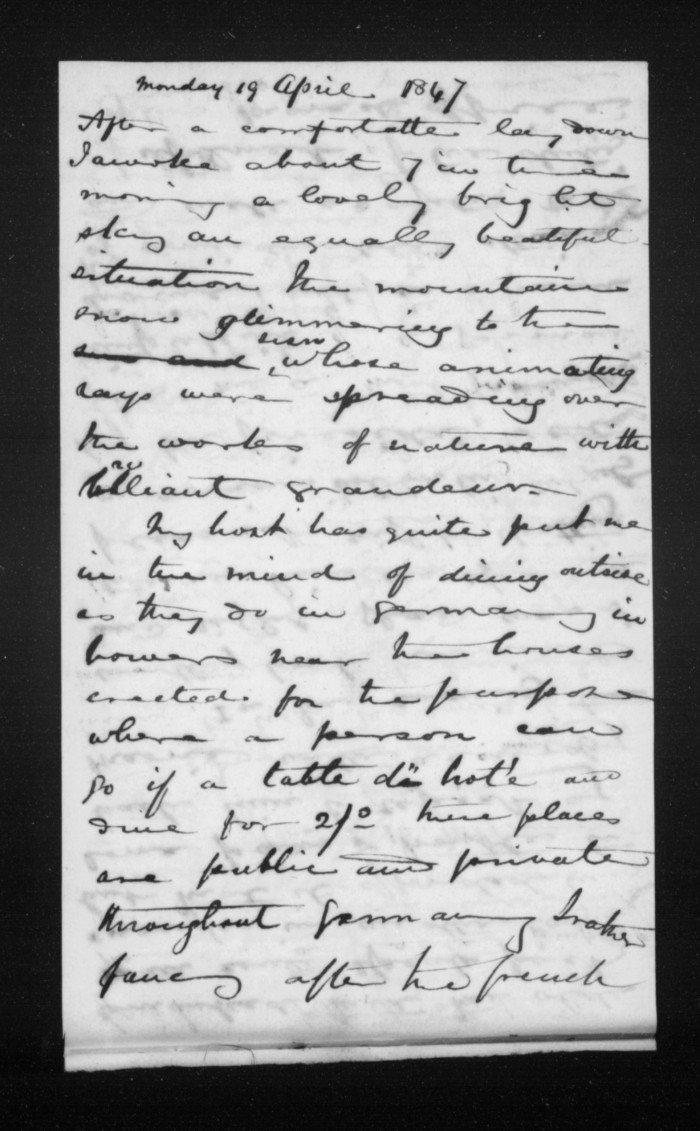 Monday 19 April 1847
After a comfortatte lay down
I awoke about 7 in the
morning a lovely bright
sky an equally beatiful
situation the mountains
snow glimmering to the
sun and sun, whose animating
rays were spreading over
the works of nature with
brilliant grandeur.
My host has quite put me
in the mind of dining outside
as they do in Germany in
bowers near the houses
erected for the purpose
where a person can
go if a table dë hot'e and
dine for 2/0 these places
are public and private
throughout Germany I rather
fancy after the french